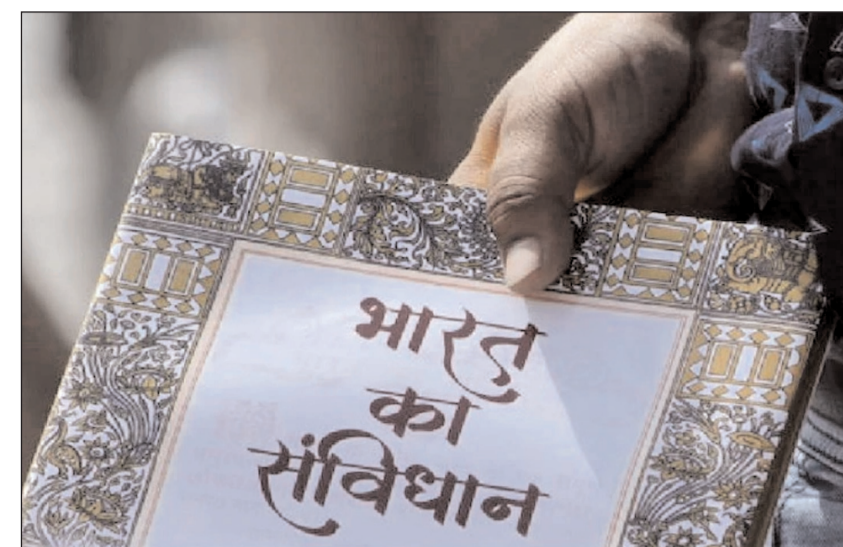 भारत
का
संविधान